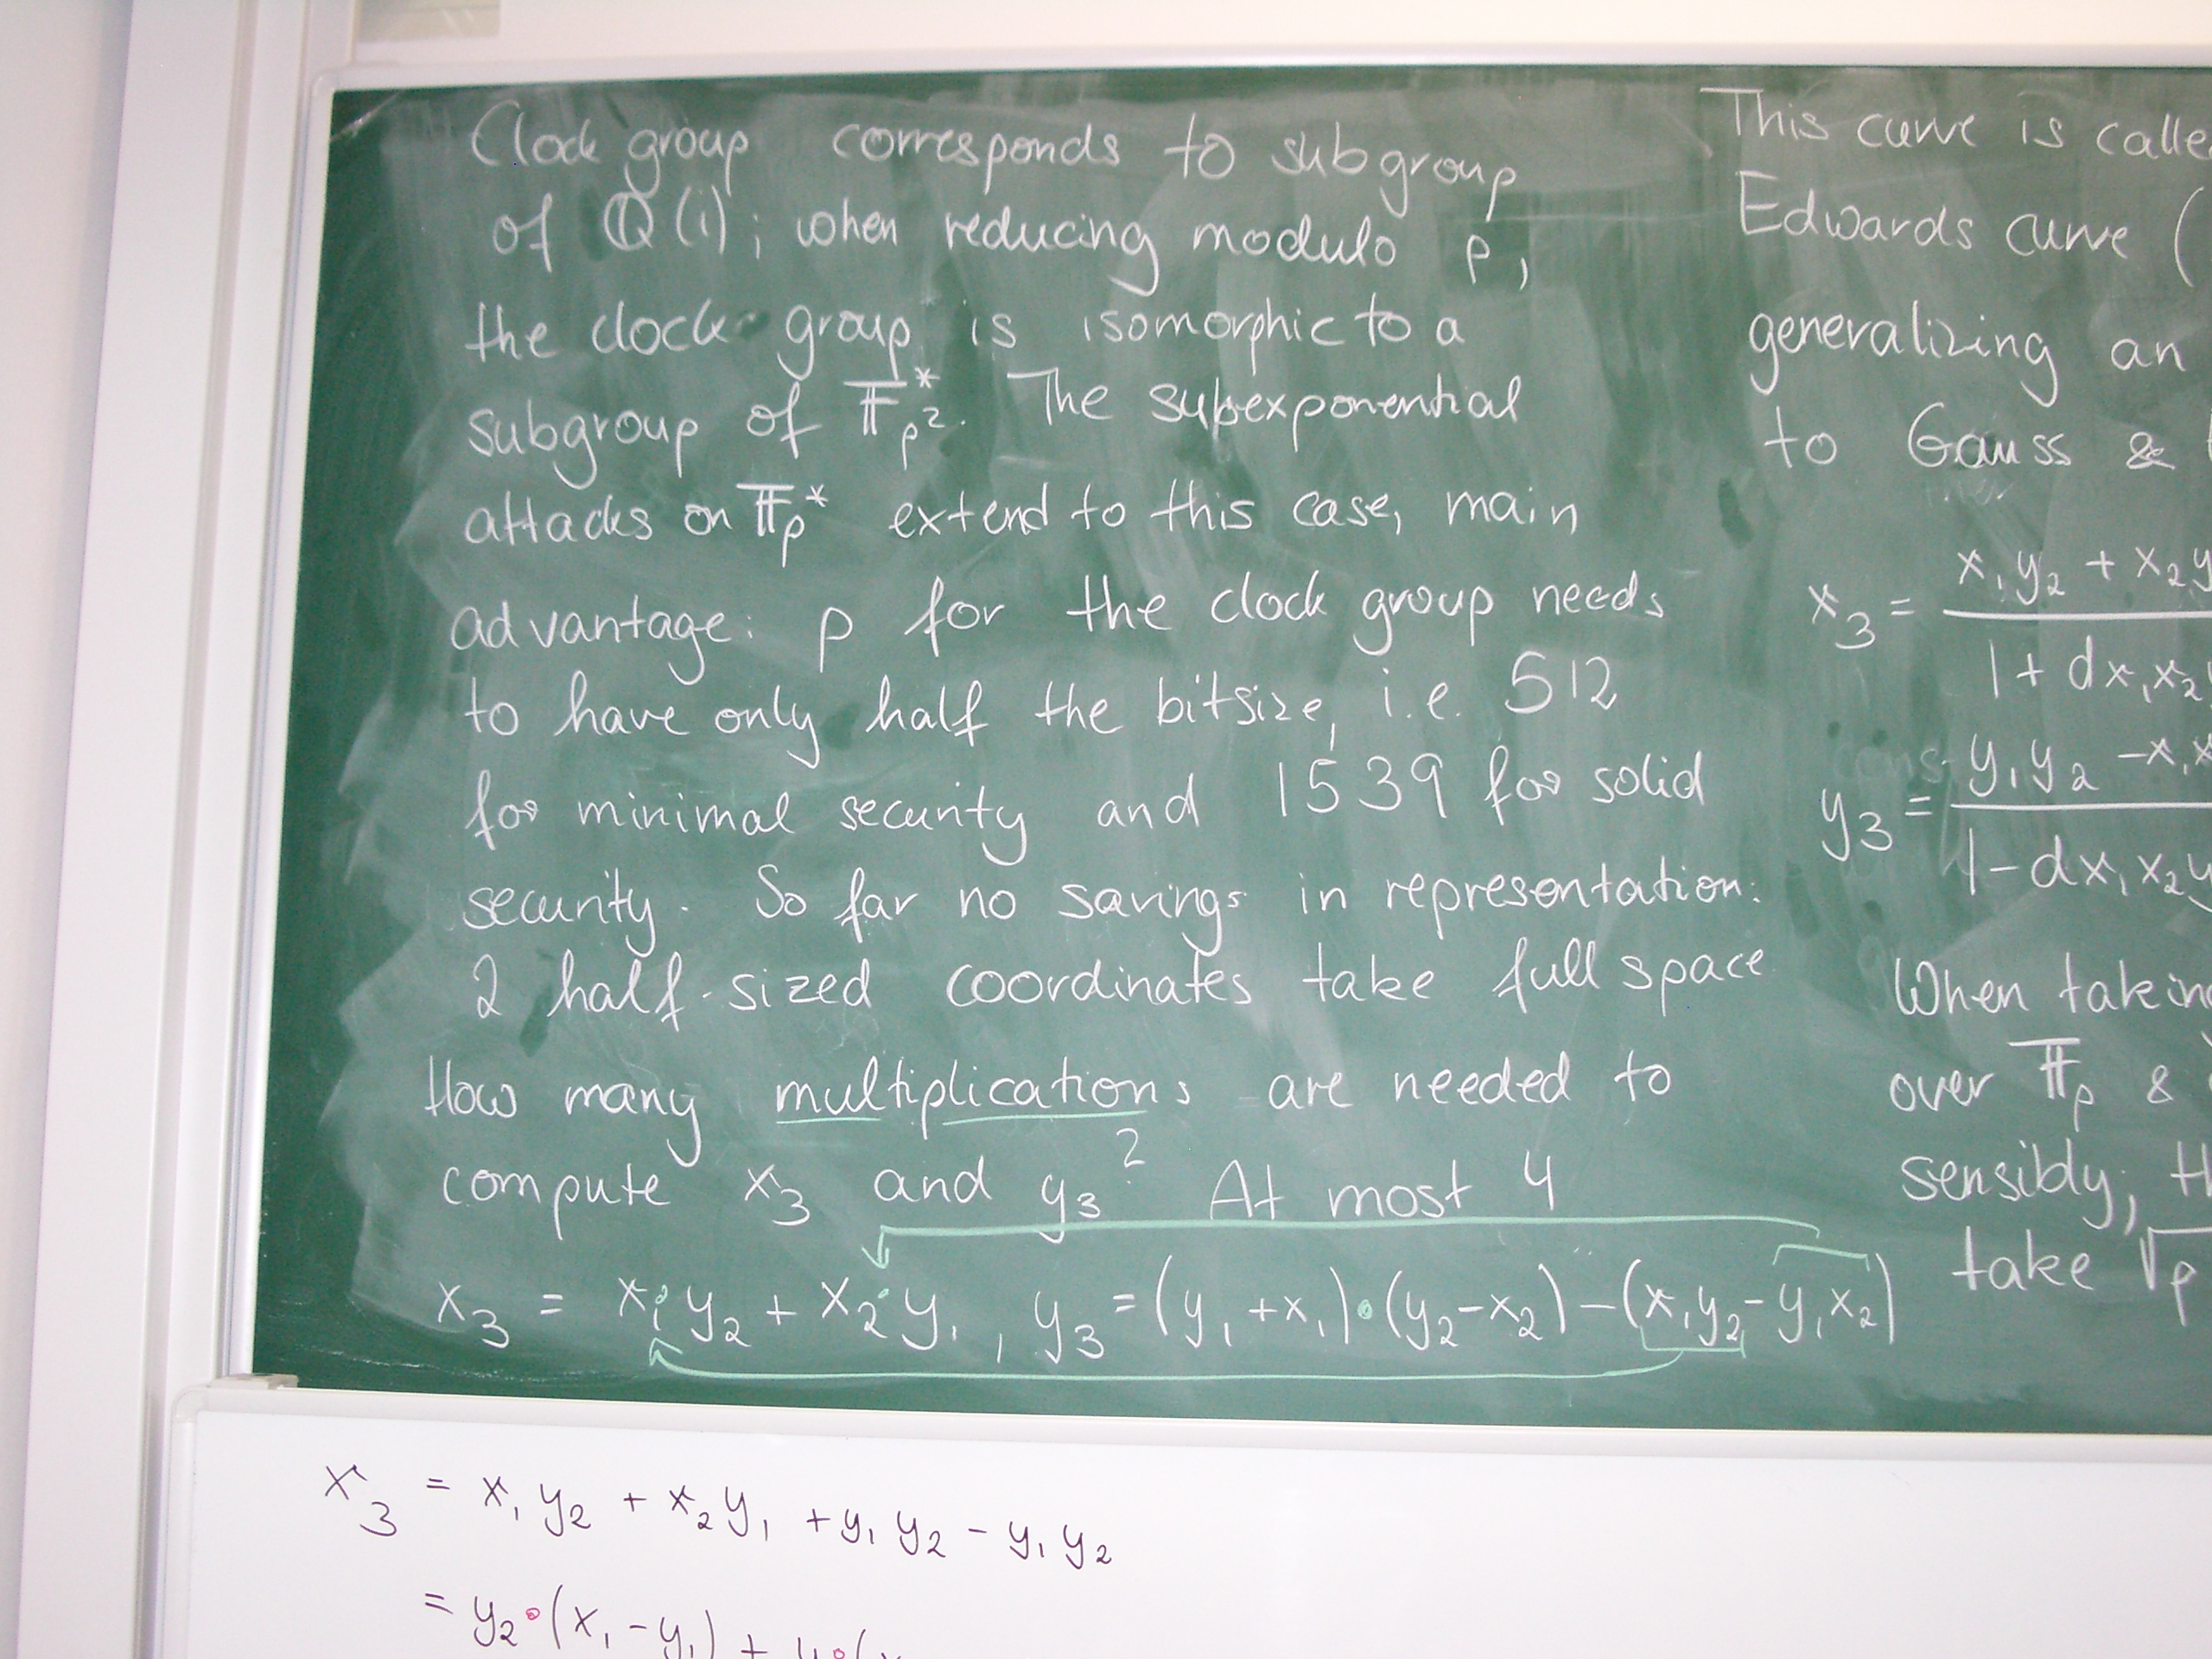 Clock group corresponds to subgroup
of ℚ(i); when reducing modulo p,
the clock group is isomorphic to a
subgroup of 𝔽ₚ²*. The subexponential
attacks on 𝔽ₚ* extend to this case, main
advantage: p for the clock group needs
to have only half the bitsize, i.e. 512
for minimal security and 1539 for solid
security. So far no savings in representation:
2 half-sized coordinates take full space
How many multiplications are needed to
compute x₃ and y₃? At most 4
x₃ = x₁·y₂ + x₂·y₁, y₃ = (y₁+x₁)·(y₂-x₂)-(x₁y₂-y₁x₂)
This curve is calle
Edwards curve (
generalizing an
to Gauss &
x₃ = x₁y₂ + x₂y
1 + dx₁x₂
y₃ = y₁y₂ - x₁x
1 - dx₁x₂y
When takin
over 𝔽ₚ &
sensibly, th
take √p
x₃ = x₁y₂ + x₂y₁ + y₁y₂ - y₁y₂
= y₂·(x₁-y₁) +